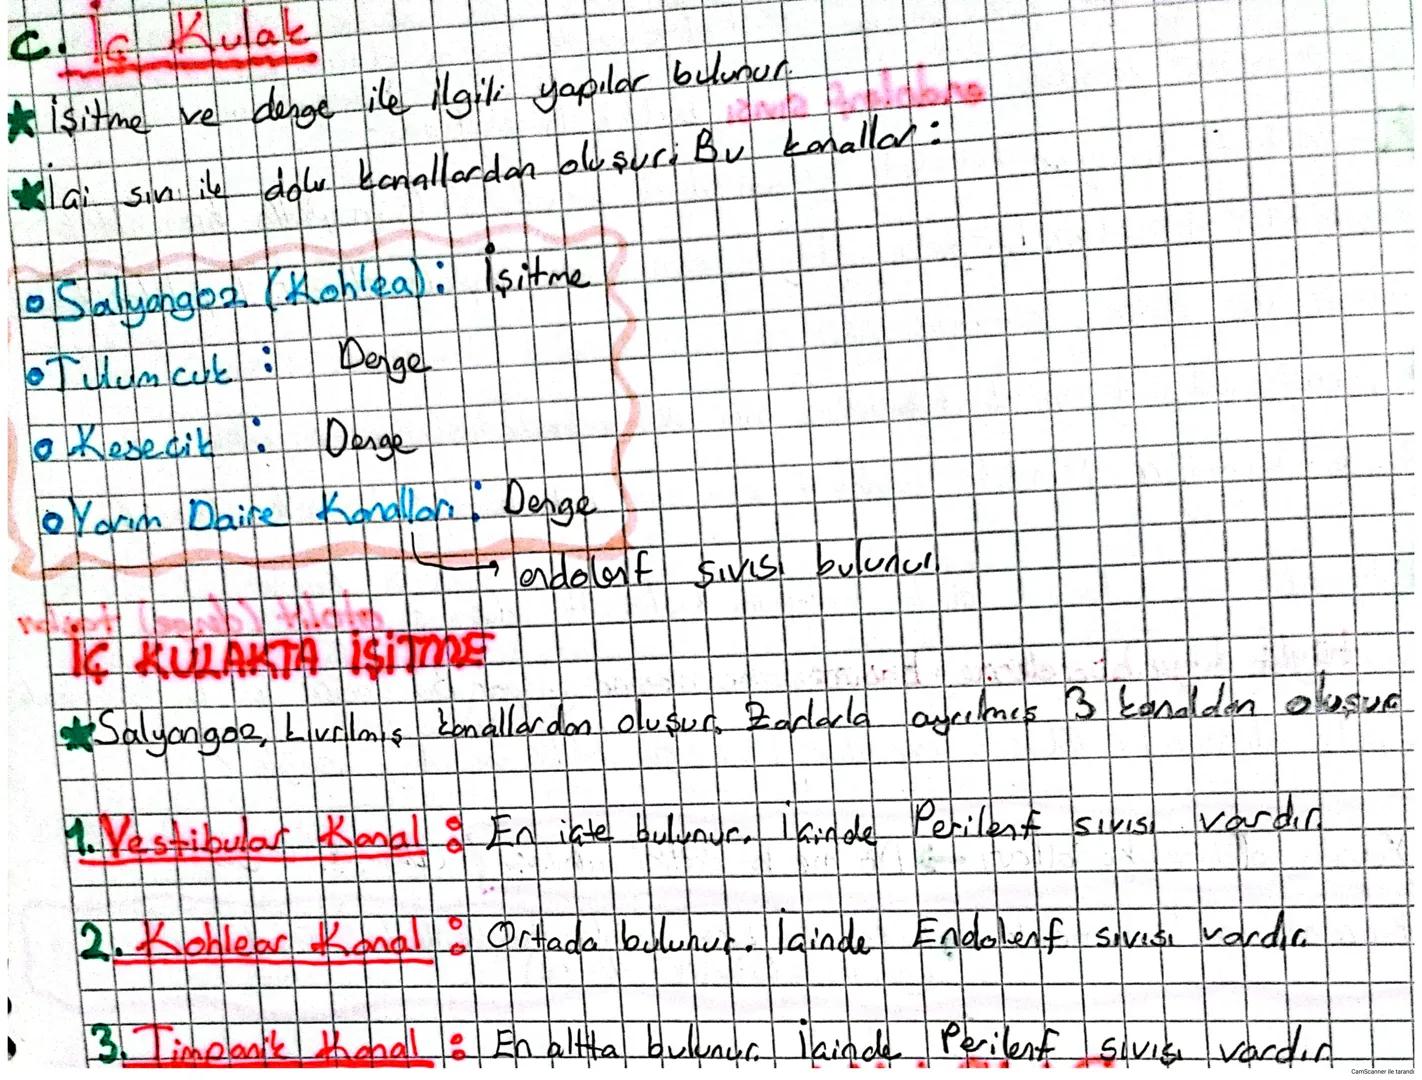 C. İç Kulak
★ İşitme ve denge ile ilgili yapılar bulunur.
★ İçi sıvı ile dolu kanallardan oluşur. Bu kanallar :
• Salyangoz (Kohlea) : İşitme
• Tulumcuk : Denge
• Kesecik : Denge
• Yarım Daire Kanalları : Denge
→ endolenf sıvısı bulunur
İÇ KULAKTA İŞİTME
★ Salyangoz, kıvrılmış kanallardan oluşur. Zarlarla ayrılmış 3 kanaldan oluşur
1. Vestibular Kanal : En üstte bulunur. İçinde Perilenf sıvısı vardır.
2. Kohlear Kanal : Ortada bulunur. İçinde Endolenf sıvısı vardır
3. Timpanik Kanal : En altta bulunur. İçinde Perilenf sıvısı vardır
CamScanner ile tarandı